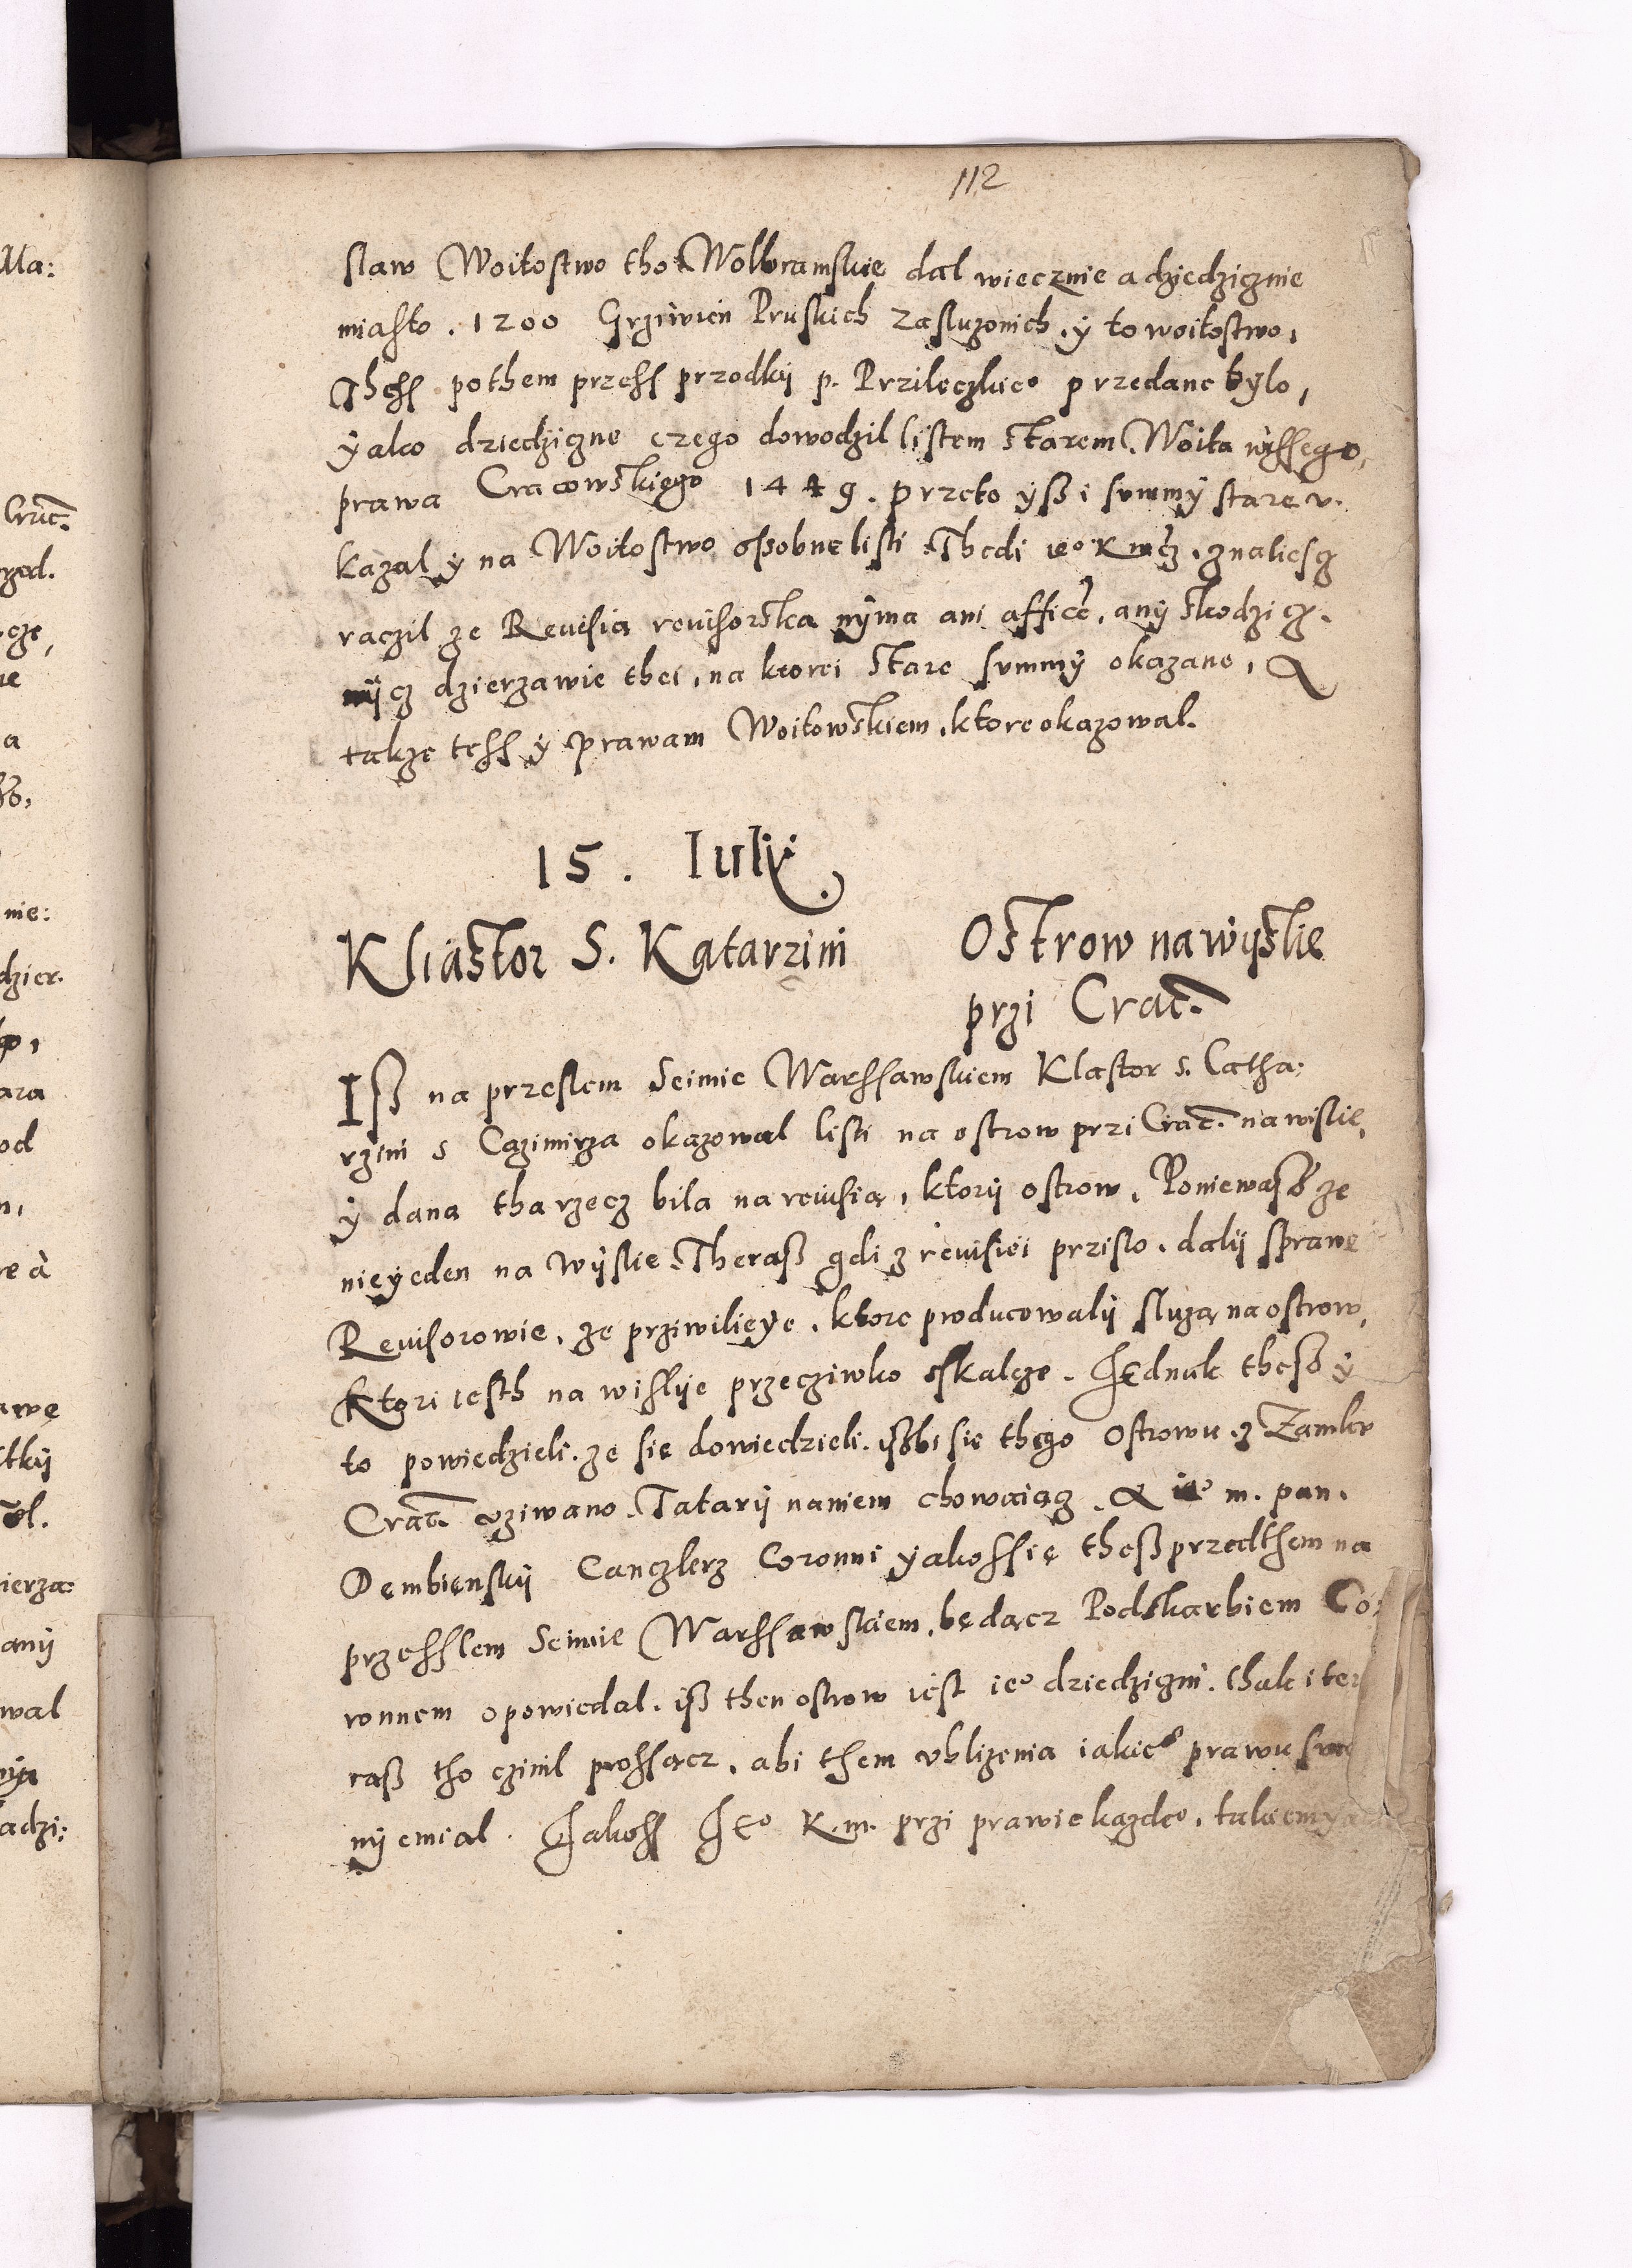 112
slaw Woitostwo tho Wolbramskie dal wiecznie a dziedzicznie
miasto . 1200 Grziwien Pruskich zasluzonich . y to woitostwo,
Thess pothem przess przodky p. Przileczkieo przedane bylo,
yako dziedziczne czego dowodzil listem starem Woita wyssego
prawa Cracowskiego 1449. przeto yß i summy stare v.
kazal y na Woitostwo ossobne listi Thedi ieo K mcz. znaliesz
raczil ze Revisia revisorska nyma ani afficé, any skodzicz.
nycz dzierzawie thei, na ktorei stare summy okazano, &
takze tess y prawam Woitowskiem, ktore okazowal.
15. Iuly
Kliastor S. Katarzini
Ostrow na wyslie
przi Crac.
Iß na przeslem Seimie Warssawskiem Klastor s. Catha:
rzini s Cazimirza okazowal listi na ostrow przi Crac. na wislie,
y dana tha rzecz bila na revisią, ktory ostrow, Poniewaß ze
nieyeden na wyslie Theraß gdi z revisiei przislo . daly sprawe
Revisorowie, ze prziwilieye, ktore producowaly sluzą na ostrow,
Ktori iesth na wislye przecziwko skalcze. Jednak theß y
to powiedzieli. ze się dowiedzieli. ißbi się thego Ostrowu z Zamku
Crac. vziwano Tatary naniem chowaiącz. & ieo m. pan.
Dembiensky Canczlerz Coronni yakossię theß przedthem na
przesslem Seimie Warssawskiem, będącz Podskarbiem Co:
ronnem opowiedal. iß then ostrow iest ieo dziedziczni. thak i te
raß tho czinil prossacz, abi them vblizenia iakieo prawu
ny emial. Jakoss Jeo K.m. przi prawie kazdeo, takiem